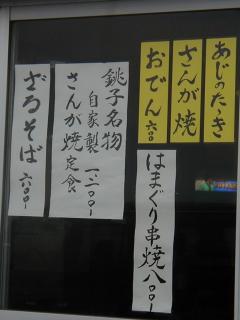 あじのたゝき
さんが焼
おでん 六〇〇
はまぐり串焼 八〇〇
銚子名物
自家製
さんが焼定食 一、二〇〇
ざるそば 六〇〇